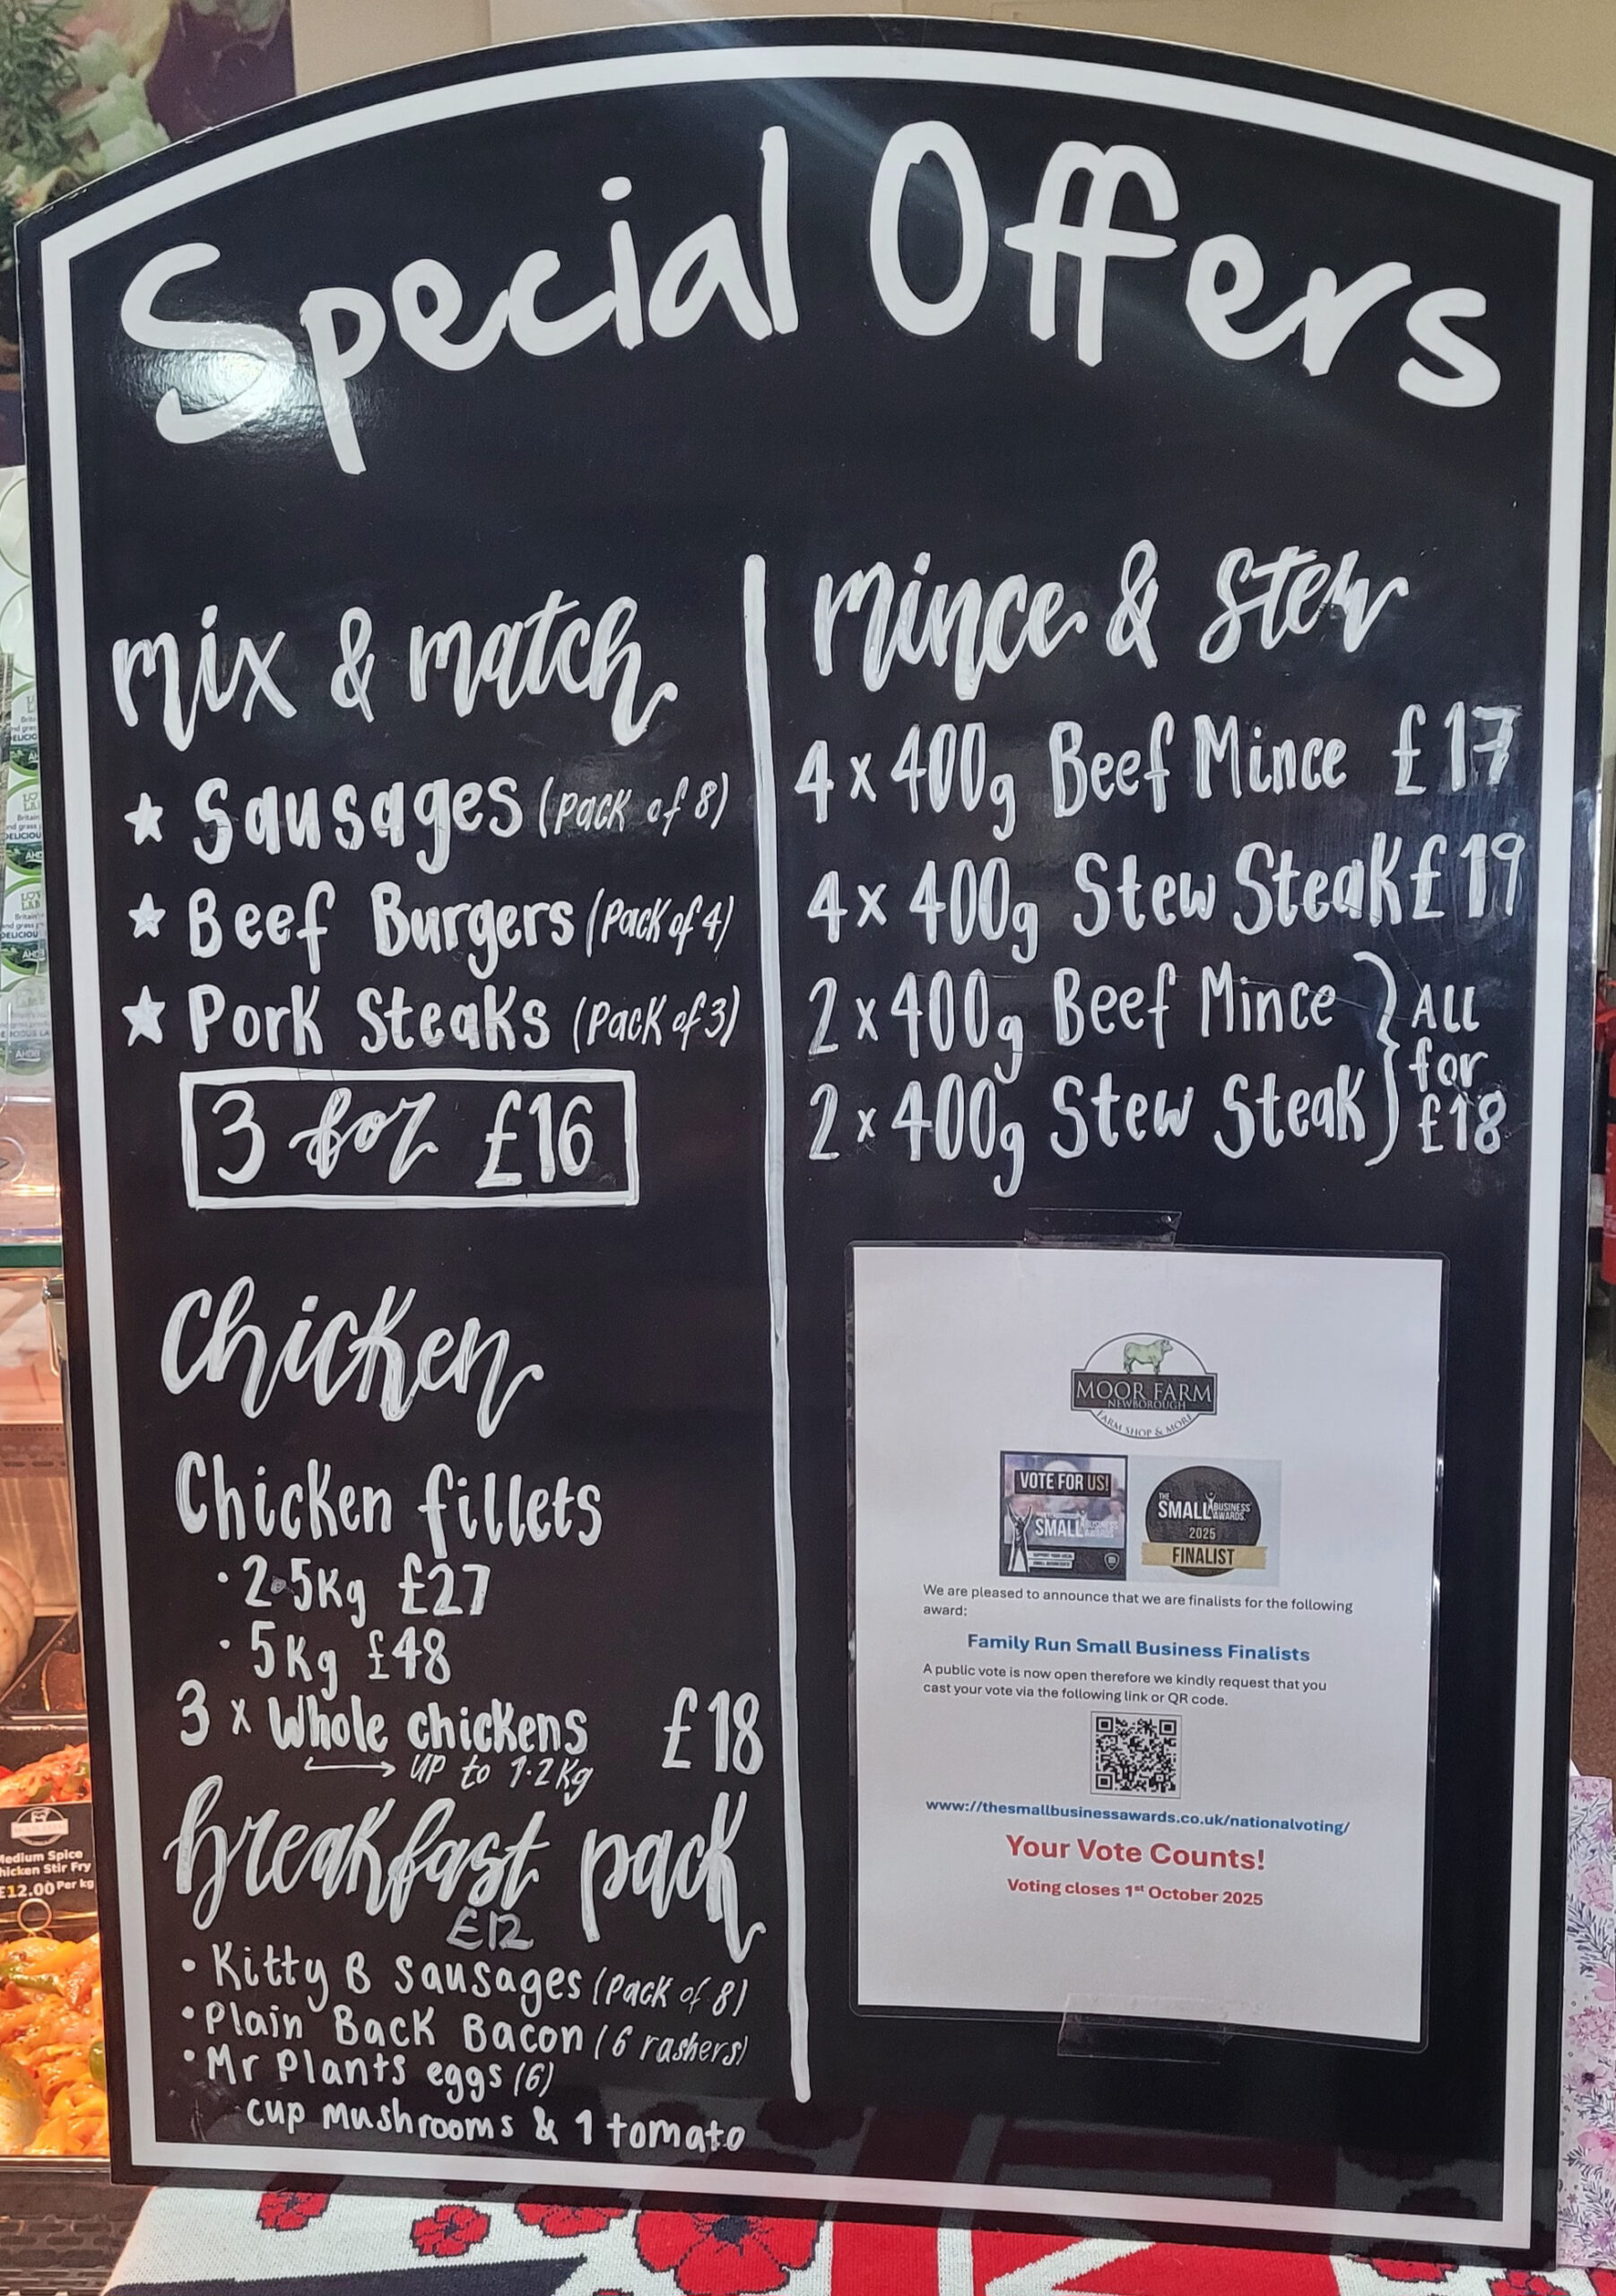 Special Offers
mix & match
★ Sausages (pack of 8)
★ Beef Burgers (Pack of 4)
★ Pork Steaks (Pack of 3)
3 for £16
Chicken
Chicken fillets
• 2.5Kg £27
• 5Kg £48
3 x Whole chickens £18
→ up to 1.2Kg
breakfast pack
£12
• Kitty B sausages (Pack of 8)
• Plain Back Bacon (6 rashers)
• Mr Plants eggs (6)
cup mushrooms & 1 tomato
Mince & Stew
4 x 400g Beef Mince £17
4 x 400g Stew Steak £19
2 x 400g Beef Mince
2 x 400g Stew Steak
ALL
for
£18
MOOR FARM
NEWBOROUGH
FARM SHOP & MORE
VOTE FOR US!
SMALL BUSINESS AWARDS
THE SMALL BUSINESS AWARDS
2025
FINALIST
We are pleased to announce that we are finalists for the following
award:
Family Run Small Business Finalists
A public vote is now open therefore we kindly request that you
cast your vote via the following link or QR code.
www://thesmallbusinessawards.co.uk/nationalvoting/
Your Vote Counts!
Voting closes 1st October 2025
Medium Spice
Chicken Stir Fry
£12.00 Per kg